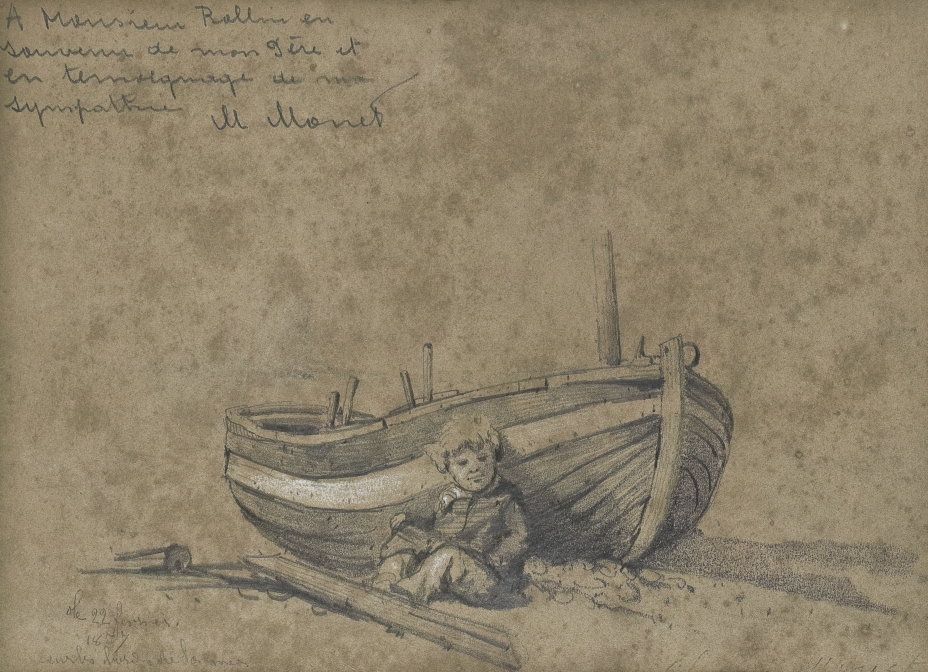 A Monsieur Rollin en
souvenir de mon Père et
en temoignage de ma
sympathie
M Monet
le 22